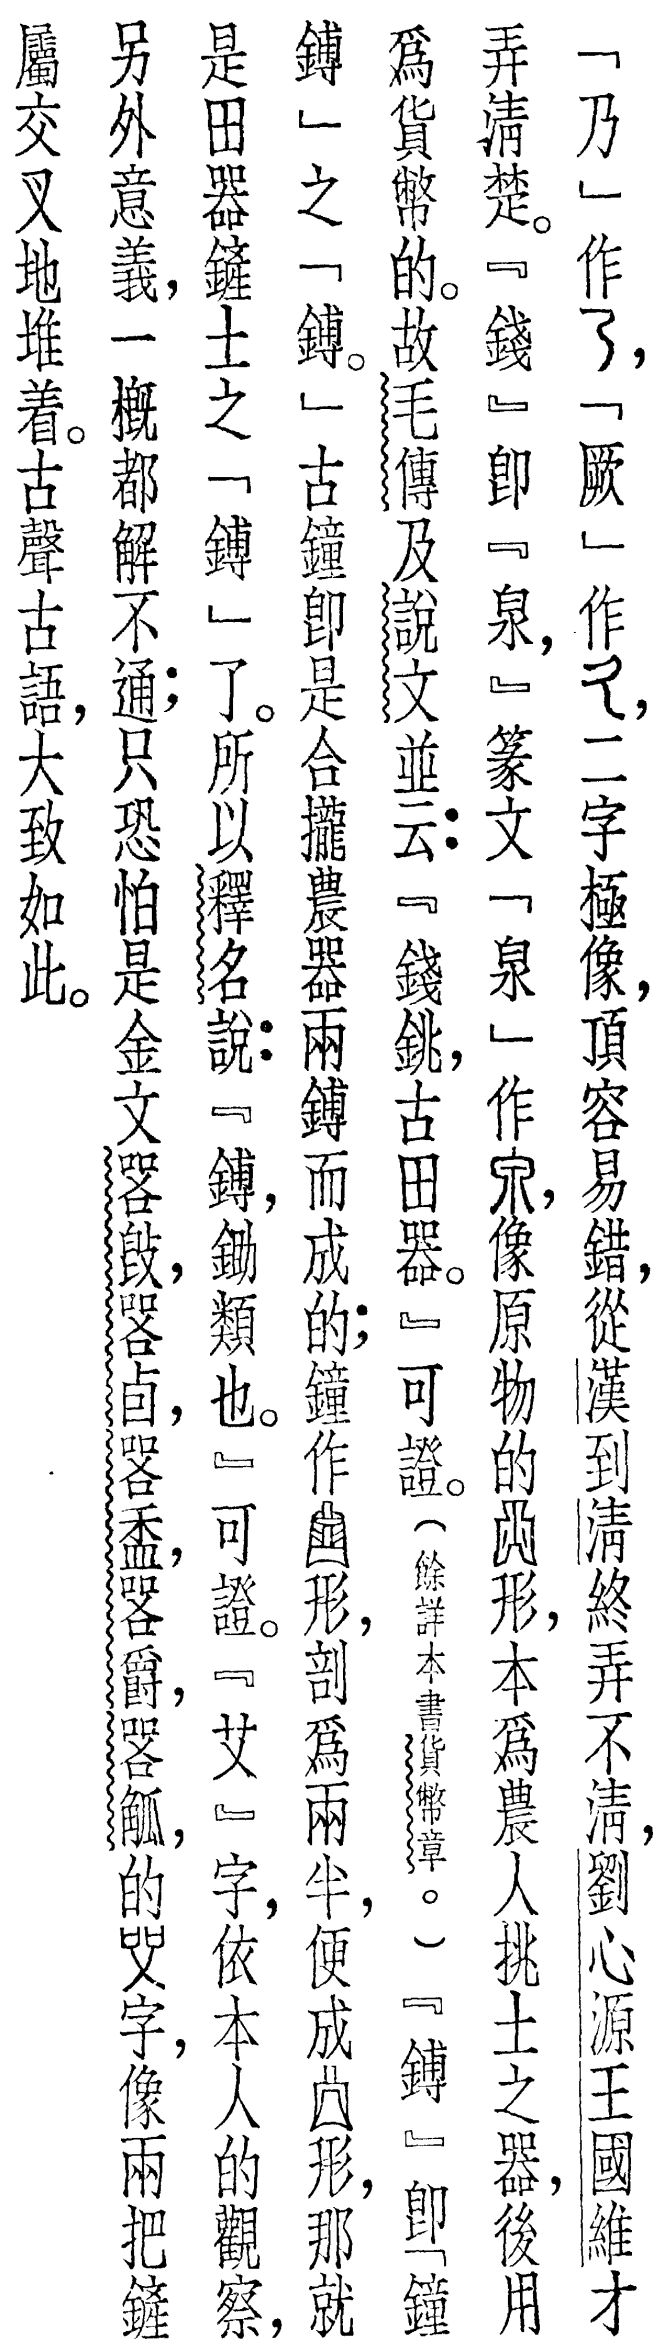 「乃」作，「厥」作，二字極像，頂容易錯，從漢到淸終弄不淸，劉心源王國維才
弄淸楚。『錢』卽『泉，』篆文「泉」作，像原物的形，本爲農人挑土之器，後用
爲貨幣的。故毛傳及說文並云：『錢銚，古田器。』可證。（餘詳本書貨幣章。）『鎛』卽「鐘
鎛」之「鎛。」古鐘卽是合攏農器兩鎛而成的；鐘作形，剖爲兩半，便成形，那就
是田器鏟土之「鎛」了。所以釋名說：『鎛，鋤類也。』可證。『艾』字，依本人的觀察，
另外意義，一槪都解不通；只恐怕是金文㗉㲃，㗉卣，㗉盉，㗉爵，㗉觚，的字，像兩把鏟
屬交叉地堆着。古聲古語，大致如此。